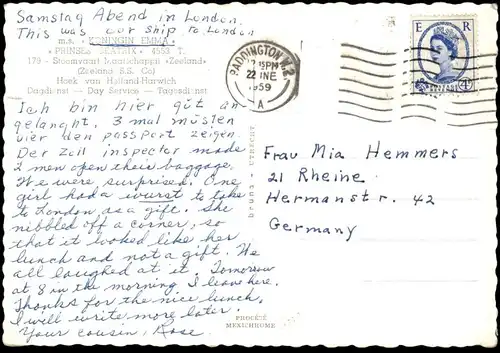 Samstag Abend in London.
This was our ship to London
m.s. "KONINGIN EMMA"
"PRINSES BEATRIX" 4353 T.
179 - Stoomvaart Maatschappij «Zeeland»
(Zeeland S.S. Co)
Hoek van Holland-Harwich
Dagdienst — Day Service — Tagesdienst
Ich bin hier gut an
gelangt. 3 mal müsten
vier den passport zeigen.
Der Zoll inspector made
2 men open their baggage.
We were surprised. One
girl had a wurst to take
to London as a gift. She
nibbled off a corner, so
that it looked like her
lunch and not a gift. We
all laughed at it. Tomorrow
at 8 in the morning I leave here.
Thanks for the nice lunch.
I will write more later.
Your cousin, Rose
PADDINGTON W.2
22 JNE
1959
A
E R
POSTAGE
4D
bruna - UTRECHT
Frau Mia Hemmers
21 Rheine
Hermanstr. 42
Germany
PROCÉTÉ
MEXICHROME